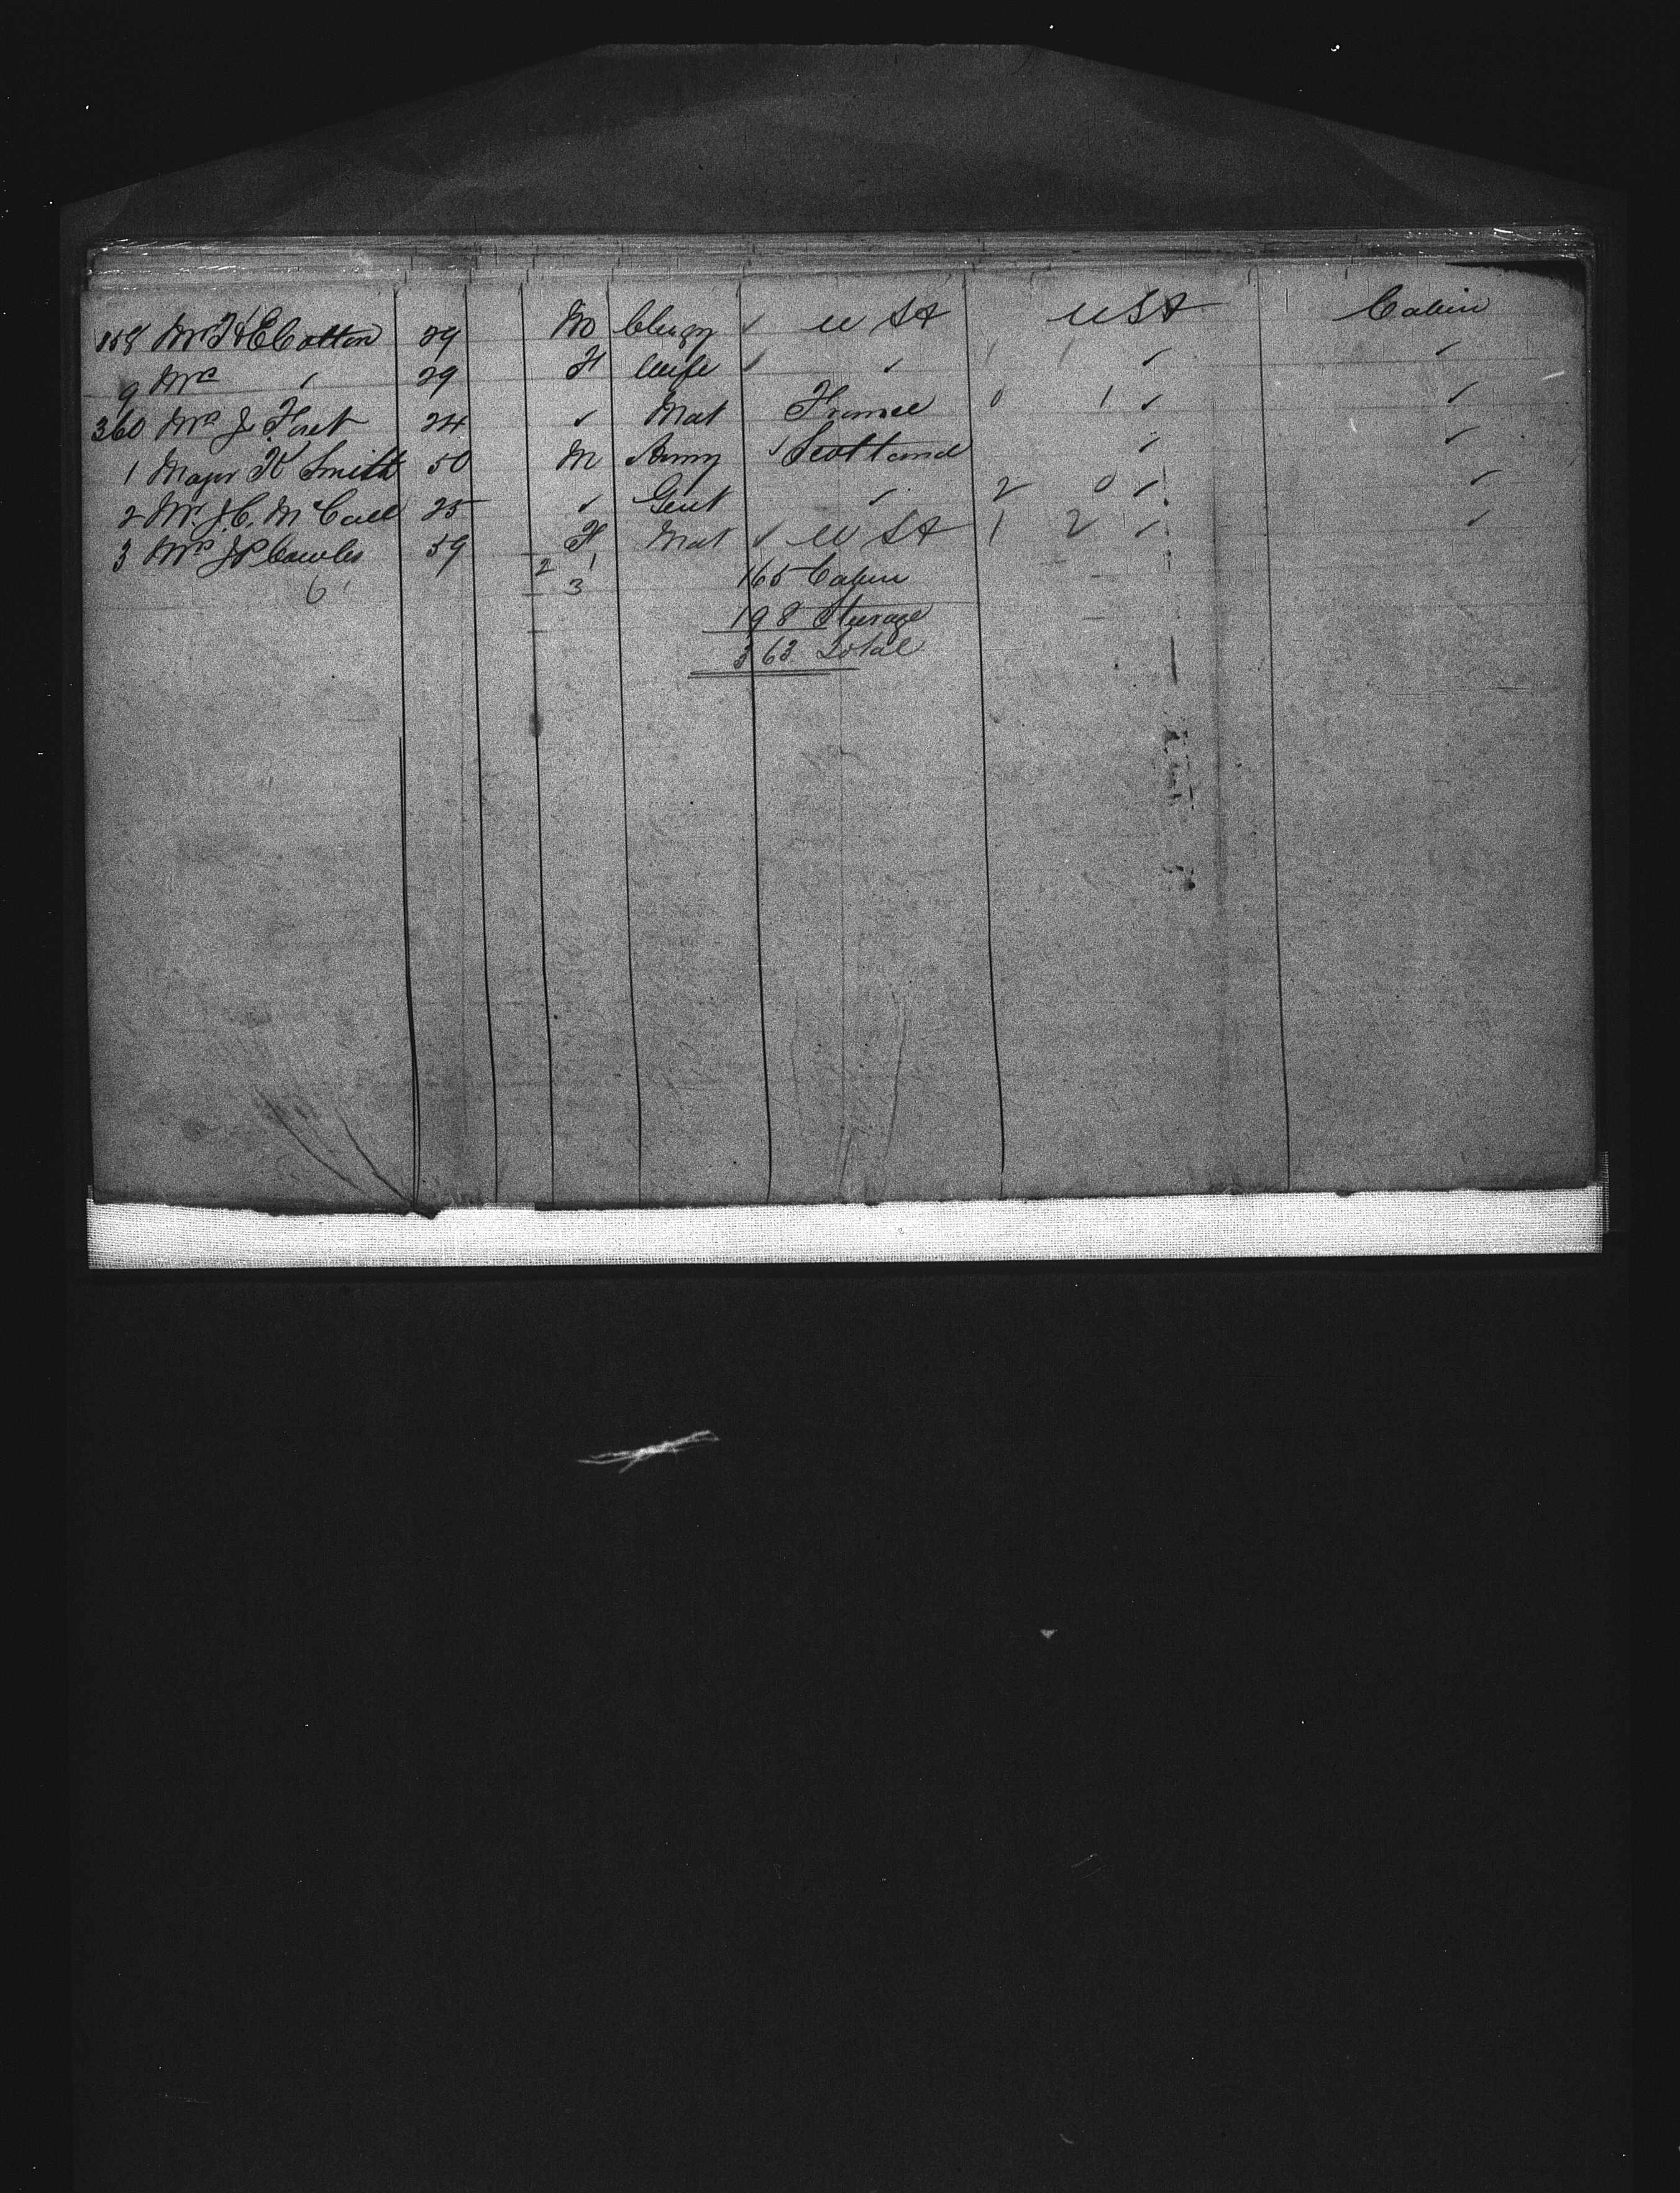 358 Mr F H E Cotton 29 M Clergy ✓ U S A U S A Cabin
9 Mrs " 29 F Wife ✓ " 1 1 " "
360 Mrs J. Foret 24 " Mat France 0 1 " "
1 Major K Smith 50 M Army ✓ Scotland " "
2 Mr. J. C. McCall 25 " Gent " 2 0 " "
3 Mrs J P Cowles 59 F Mat ✓ U S A 1 2 " "
2 1 165 Cabin
6 3
198 Sterage
363 Total